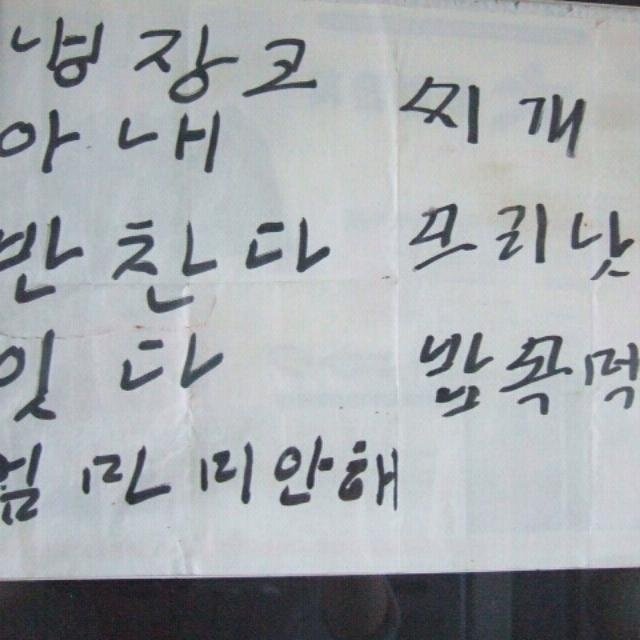 넝장코
아내
반찬다
잇다
엄만 미안해
찌개
프리낫
밥 꼭 먹